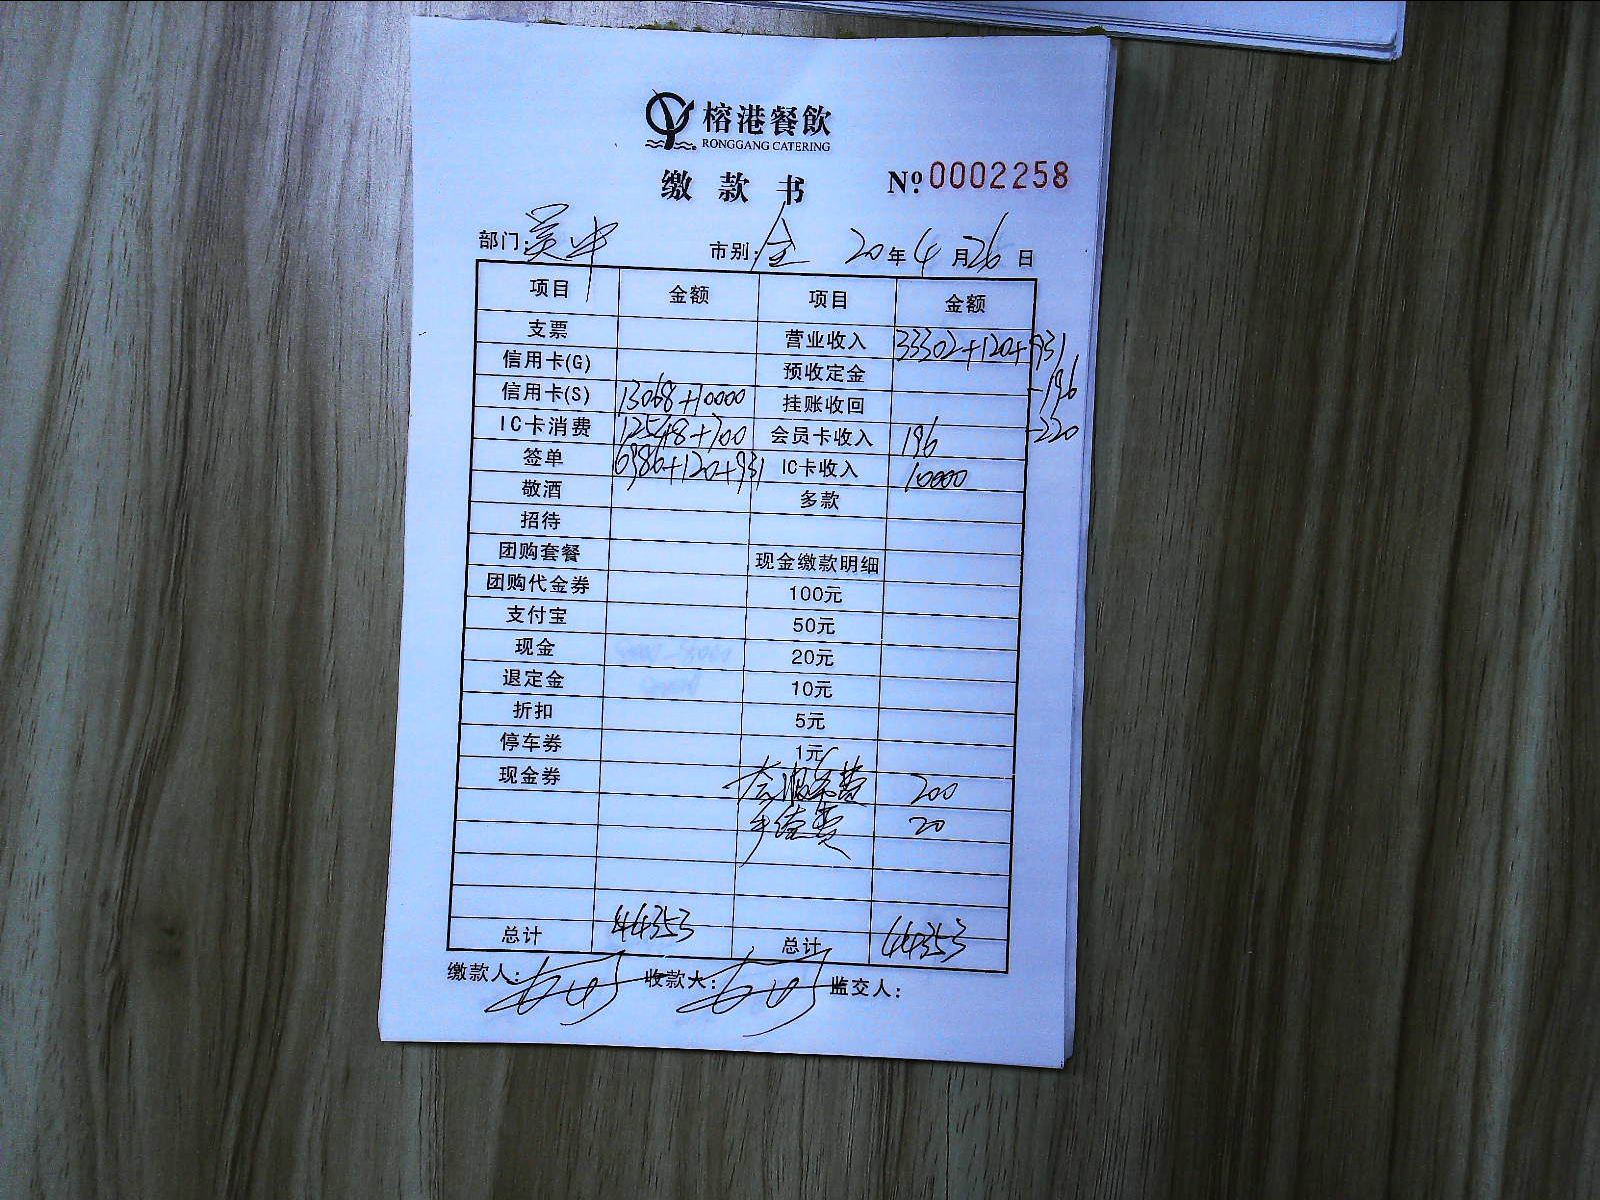 榕港餐飲
RONGGANG CATERING
缴 款 书 Nº 0002258
部门: 吴中 市别: 全 20 年 4 月 26 日
项目 金额 项目 金额
支票 营业收入 33302+120+931
信用卡(G) 预收定金 -196
信用卡(S) 13068+10000 挂账收回 -220
IC卡消费 12548+700 会员卡收入 196
签单 6986+120+931 IC卡收入 10000
敬酒 多款
招待
团购套餐 现金缴款明细
团购代金券 100元
支付宝 50元
现金 20元
退定金 10元
折扣 5元
停车券 1元
现金券 200
手续费 20
总计 44353 总计 44353
缴款人: 收款人: 监交人: